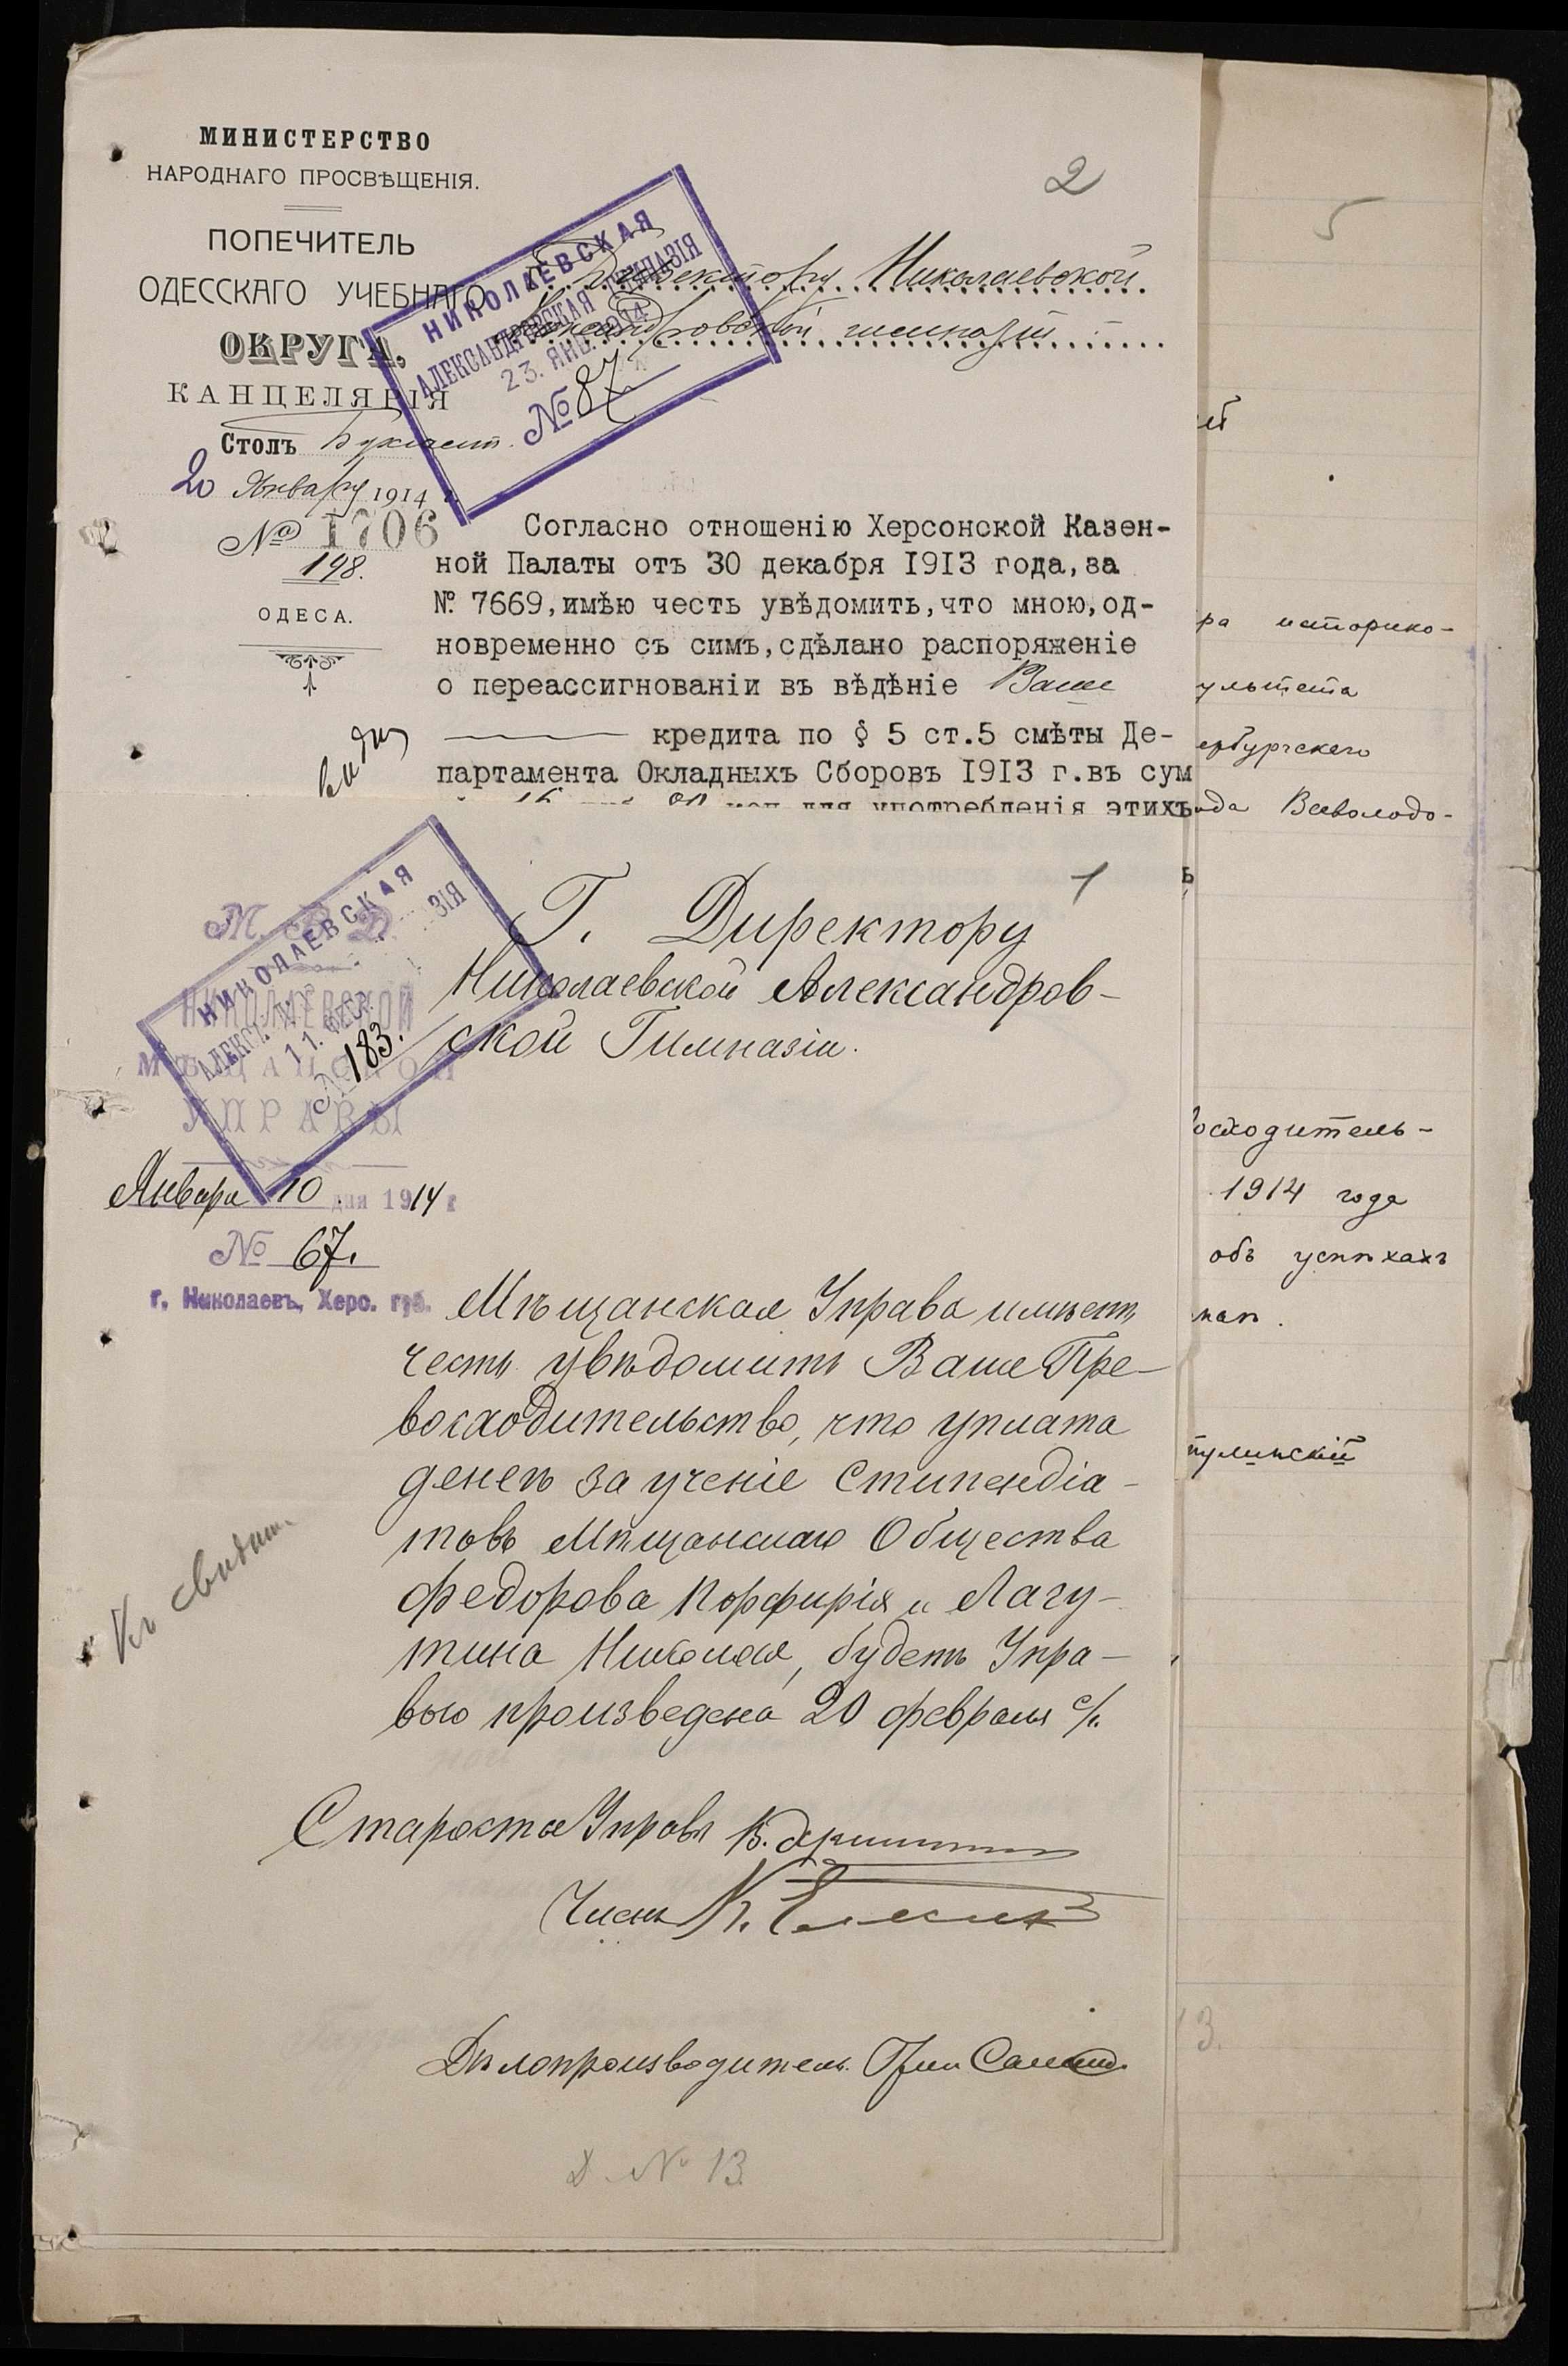 МИНИСТЕРСТВО
НАРОДНАГО ПРОСВѢЩЕНІЯ.
ПОПЕЧИТЕЛЬ
ОДЕССКАГО УЧЕБНАГО
ОКРУГА,
КАНЦЕЛЯРІЯ
Столъ Бухгалт.
20 Января 1914 г.
№ 1706
198.
ОДЕСА.
2
НИКОЛАЕВСКАЯ
АЛЕКСАНДРОВСКАЯ ГИМНАЗІЯ
23. ЯНВ. 1914
№ 87
Директору Николаевской
Александровской гимназіи
Согласно отношенію Херсонской Казен-
ной Палаты отъ 30 декабря 1913 года, за
№ 7669, имѣю честь увѣдомить, что мною, од-
новременно съ симъ, сдѣлано распоряженіе
о переассигнованіи въ вѣдѣніе Ваше
кредита по § 5 ст. 5 смѣты Де-
партамента Окладныхъ Сборовъ 1913 г. въ сум
коп для употребленія этихъ
1
М. В. Д.
НИКОЛАЕВСКОЙ
МѢЩАНСКОЙ
УПРАВЫ
Января 10 дня 1914 г
№ 67.
г. Николаевъ, Херс. губ.
НИКОЛАЕВСКАЯ
183.
Г. Директору
Николаевской Александров-
ской Гимназіи.
Мѣщанская Управа имѣетъ
честь увѣдомить Ваше Пре-
восходительство, что уплата
денегъ за ученіе стипендіа-
товъ Мѣщанскаго Общества
Федорова Порфирія и Лагу-
тина Николая, будетъ Упра-
вою произведена 20 февраля с/г.
Къ свѣдѣн.
Староста Управы
Членъ К.
Дѣлопроизводитель
Д. № 13
5
ра историко-
ультета
ербургскаго
ода Всеволодо-
осходитель-
1914 года
объ успѣхахъ
пулинскій
3.